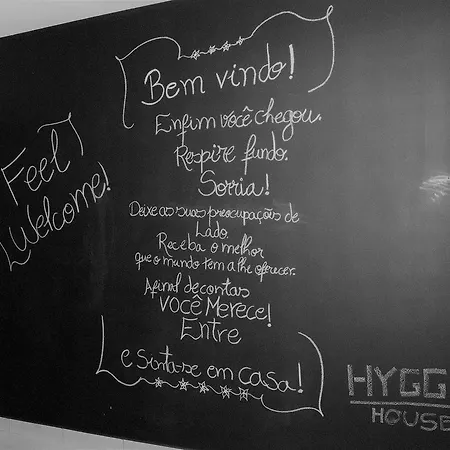 Feel
Welcome!
Bem vindo!
Enfim você chegou.
Respire fundo.
Sorria!
Deixe as suas preocupações de
Lado.
Receba o melhor
que o mundo tem a lhe oferecer.
Afinal de contas
VOCÊ Merece!
Entre
e sinta-se em casa!
HYGG
HOUSE